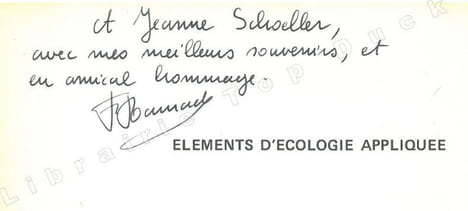 A Jeanne Schoeller,
avec mes meilleurs souvenirs, et
en amical hommage.
ELEMENTS D'ECOLOGIE APPLIQUEE
Librairie Topduck